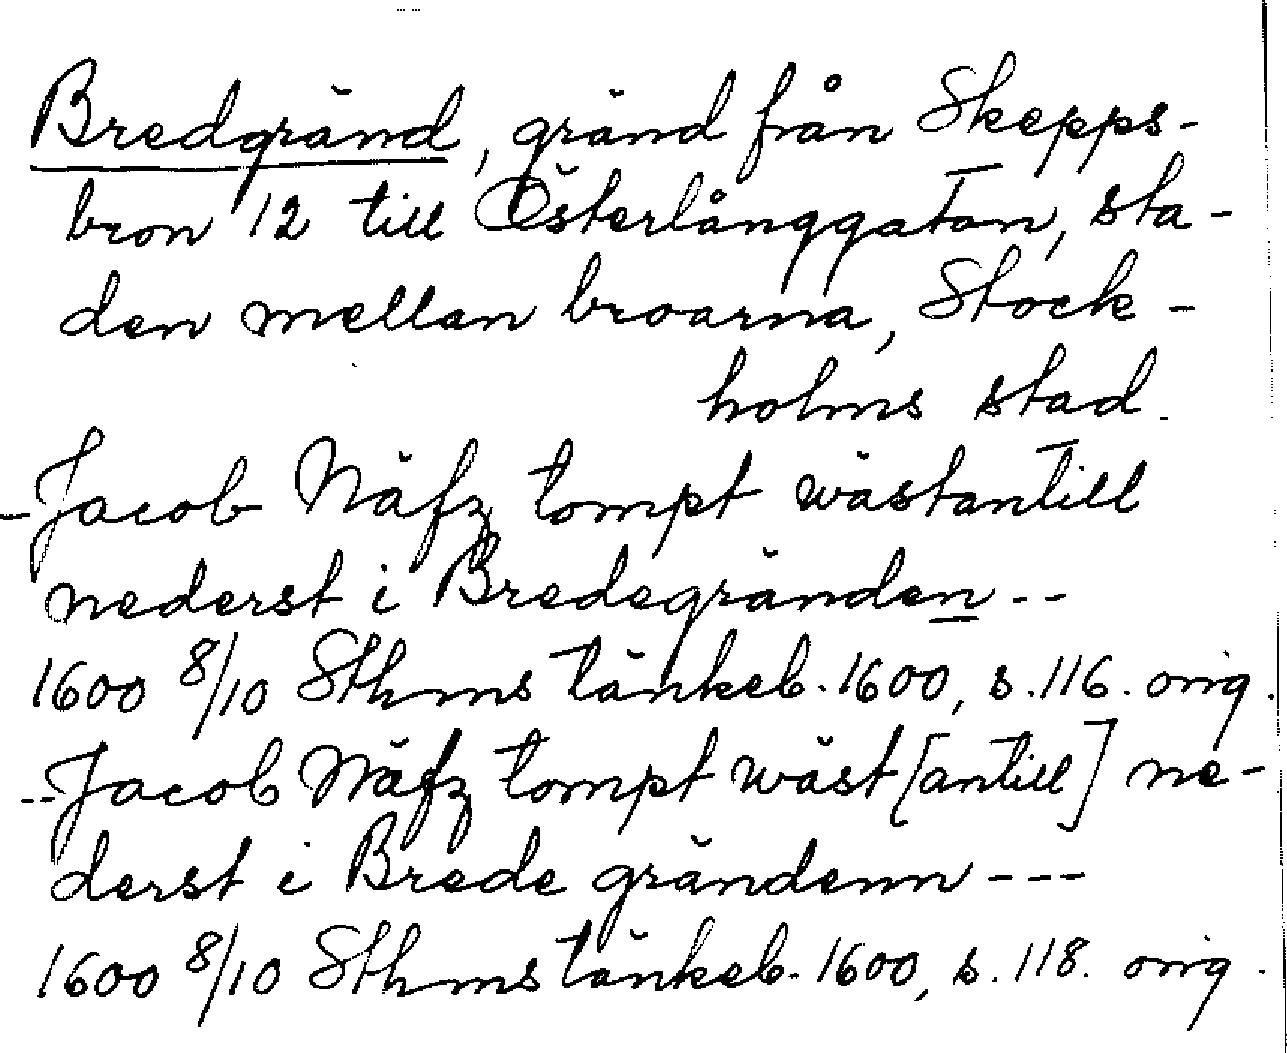 Bredgränd, gränd från Skepps-
bron 12 till Österlånggatan, sta-
den mellan broarna, Stock-
holms stad.
-Jacob Näfz tompt wästantill
nederst i Bredegränden--
1600 8/10 Sthms tänkeb. 1600, s. 116. orig.
--Jacob Näfz tompt wäst[antill] ne-
derst i Brede grändenn---
1600 8/10 Sthms tänkeb. 1600, s. 118. orig.